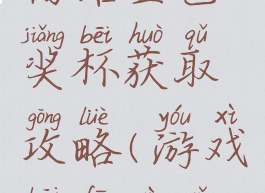 jiǎng bēi huò qǔ
奖杯获取
gōng lüè yóu xì
攻略(游戏